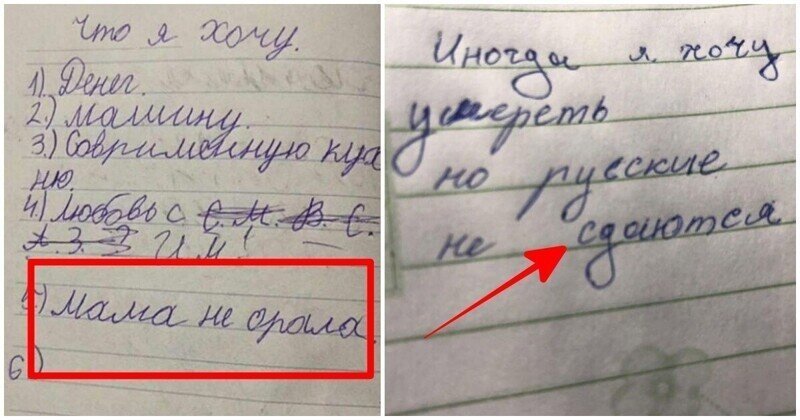 Что я хочу.
1) Денег.
2) Машину.
3) Совrименную кух
ню.
4) Любовь с С. М. В. С.
И.М!
5) Мама не орала.
6)
Иногда я хочу
умереть
но русские
не сдаются